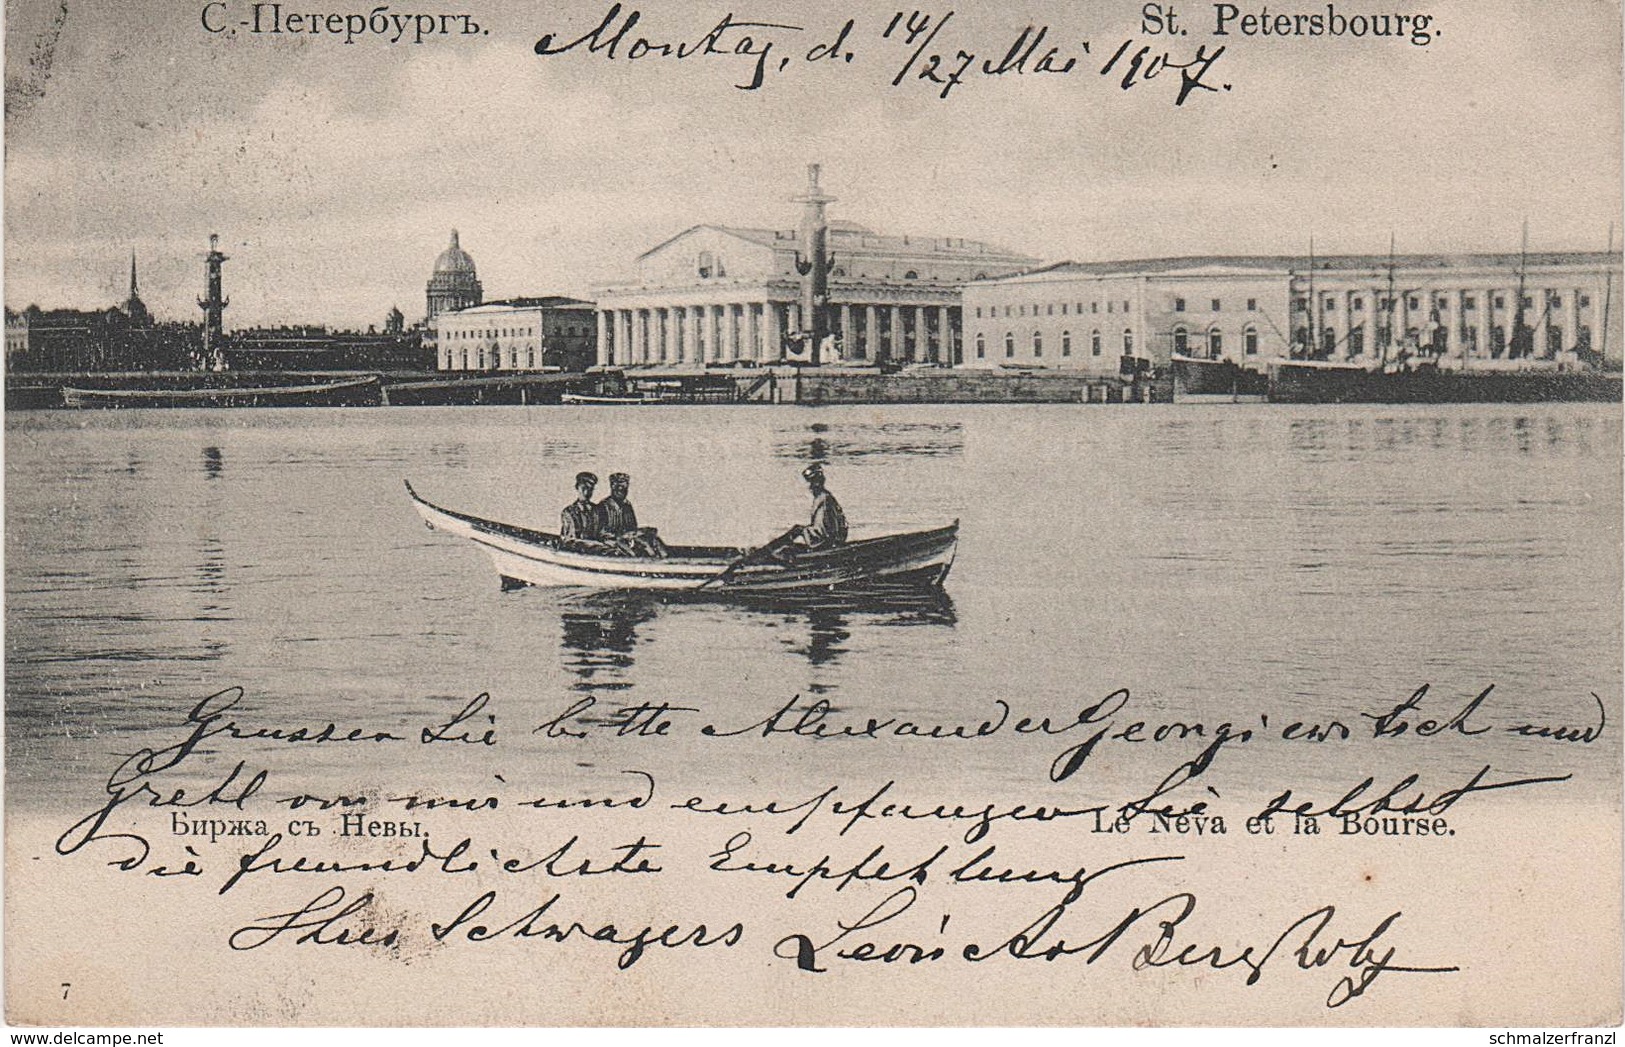 С.-Петербургъ.
St. Petersbourg.
Montag, d. 14/27 Mai 1907.
Grussen Sie bitte Alexander Georgiewitsch und
Gretl von mir und empfangen Sie selbst
Биржа съ Невы.
Le Neva et la Bourse.
die freundlichste Empfehlung
Ihres Schwagers
7
www.delcampe.net
schmalzerfranzl